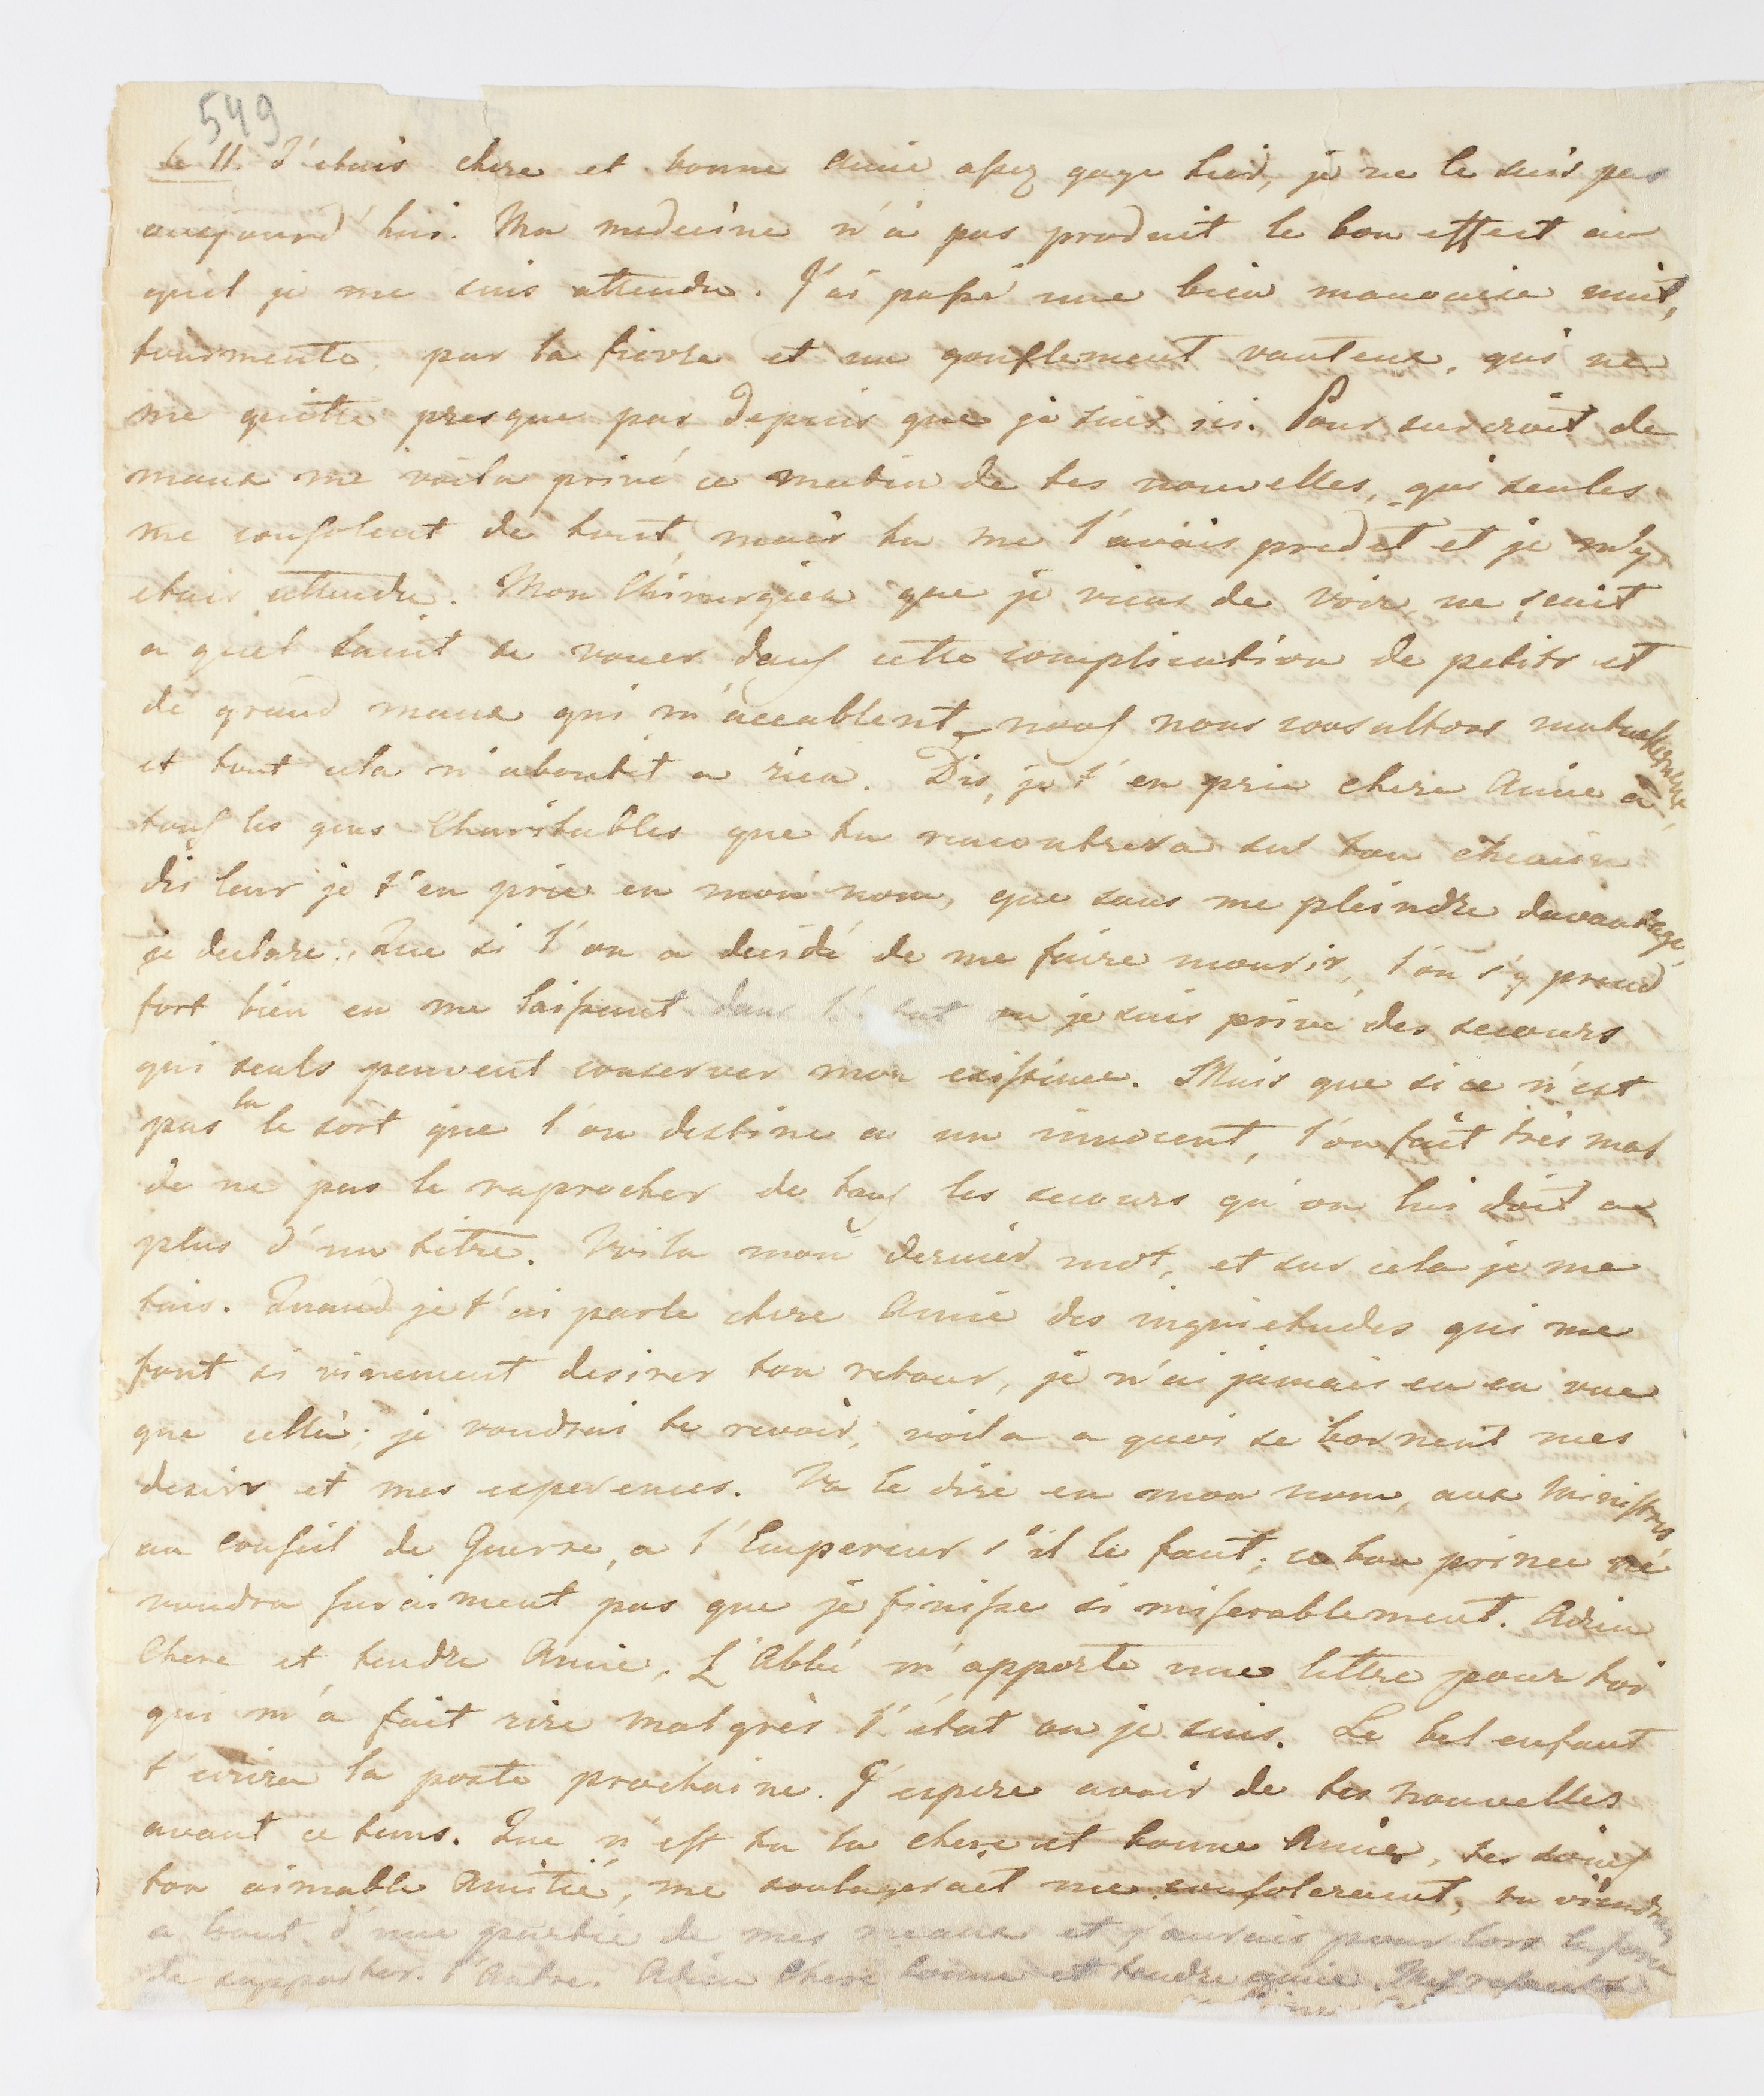 549
Le 11. J'etais chere et bonne Amie assez gaye hier, je ne le suis pas
aujourd'hui. Ma medecine n'a pas produit le bon effect au
quel je me suis attendu. J'ai passé une bien mauvaise nuit,
tourmenté par la fievre et un gonflement vanteux, qui ne
me quitte presque pas depuis que je suis ici. Pour surcroit de
maux me voila privé ce matin de tes nouvelles, qui seules
me consolent de tout, mais tu me l'avais predit et je m'y
etais attendu. Mon Chirurgien que je viens de voir ne sçait
a quel saint se vouer dans cette complication de petits et
de grand maux qui m'accablent, nous nous consultons mutuellement,
et tout cela n'aboutit a rien. Dis, je t'en prie chere Amie a
tous les gens Charitables que tu rencontrera sur ton chemin
dis leur je t'en prie en mon nom, que sans me pleindre davantage,
je declare: Que si l'on a decidé de me faire mourir, l'on s'y prend
fort bien en me laissant dans l'état ou je suis privé des secours
qui seuls peuvent conserver mon existence. Mais que si ce n'est
pas la le sort que l'on destine a un innocent, l'on fait très mal
de ne pas le raprocher de tous les secours qu'on lui doit a
plus d'un titre. Voila mon dernier mot, et sur cela je me
tais. Quand je t'ai parlé chere Amie des inquietudes qui me
font si vivement desirer ton retour, je n'ai jamais eu en vue
que cella; je voudrai te revoir, voila a quoi se bornent mes
desirs et mes esperences. Va le dire en mon nom, aux Ministres
au Conseil de Guerre, a l'Empereur s'il le faut; ce bon prince ne
voudra suraiment pas que je finisse si miserablement. Adieu
Chere et tendre Amie. L'Abbé m'apporte une lettre pour toi
qui m'a fait rire malgrès l'état ou je suis. Le bel enfant
t'ecrira la poste prochaine. J'espere avoir de tes nouvelles
avant ce tems. Que n'est tu la chere et bonne Amie, tes soins
ton aimable Amitié, me soulagerait me consoleraient, tu viendras
a bout d'une partie de mes meaux et j'aurais pour lors la force
de supporter l'Autre. Adieu Chere bonne et tendre amie.